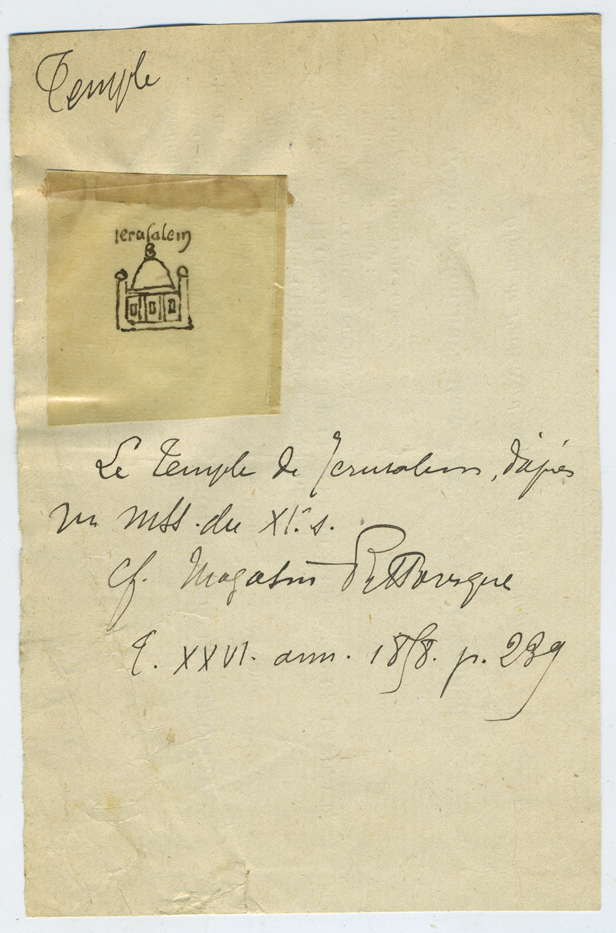 Temple
Ierusalem
Le Temple de Jerusalem, d'après
un mss. du XIe. s.
Cf. Magasin Pittoresque
T. XXVI. ann. 1858. p. 239